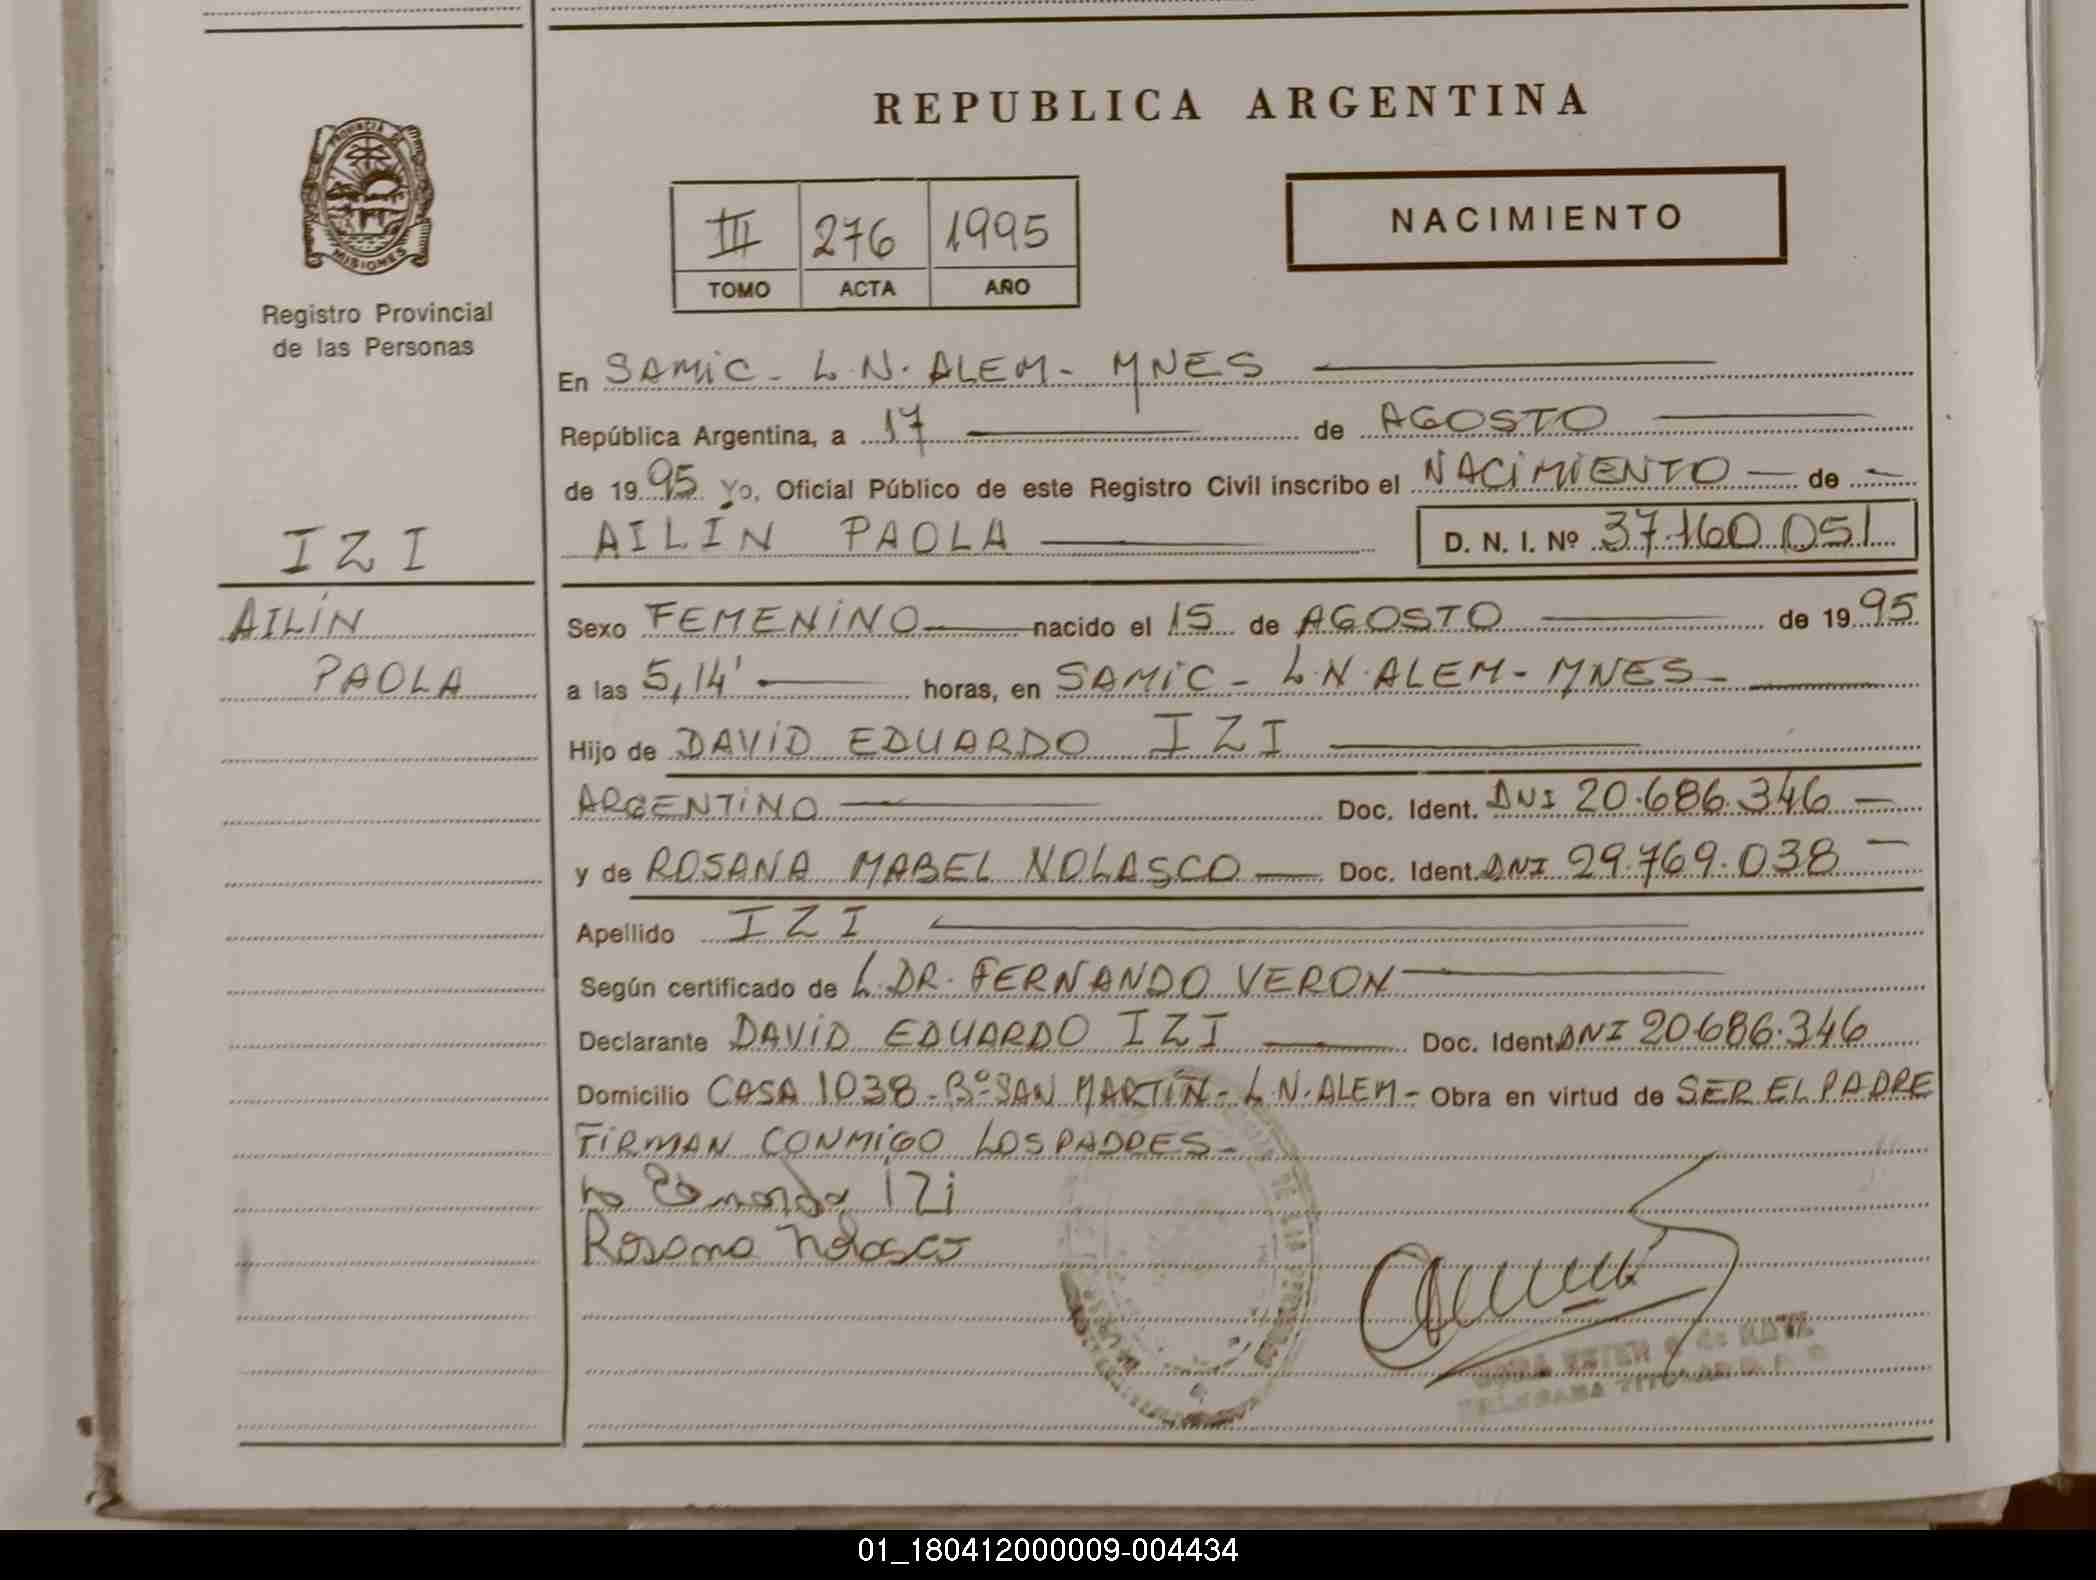 REPUBLICA ARGENTINA
PROVINCIA DE
MISIONES
Registro Provincial
de las Personas
III 276 1995
TOMO ACTA AÑO
NACIMIENTO
IZI
AILÍN
PAOLA
En SAMIC - L.N. ALEM - MNES
República Argentina, a 17 de AGOSTO
de 1995 Yo, Oficial Público de este Registro Civil inscribo el NACIMIENTO de
AILÍN PAOLA D. N. I. Nº 37.160.051
Sexo FEMENINO nacido el 15 de AGOSTO de 1995
a las 5,14' horas, en SAMIC - L.N. ALEM - MNES -
Hijo de DAVID EDUARDO IZI
ARGENTINO Doc. Ident. DNI 20.686.346
y de ROSANA MABEL NOLASCO Doc. Ident. DNI 29.769.038
Apellido IZI
Según certificado de L. DR. FERNANDO VERON
Declarante DAVID EDUARDO IZI Doc. Ident. DNI 20.686.346
Domicilio CASA 1038 - Bº SAN MARTÍN - L.N. ALEM - Obra en virtud de SER EL PADRE
FIRMAN CONMIGO LOS PADRES -
IZi
Rosana Nolasco
01_180412000009-004434